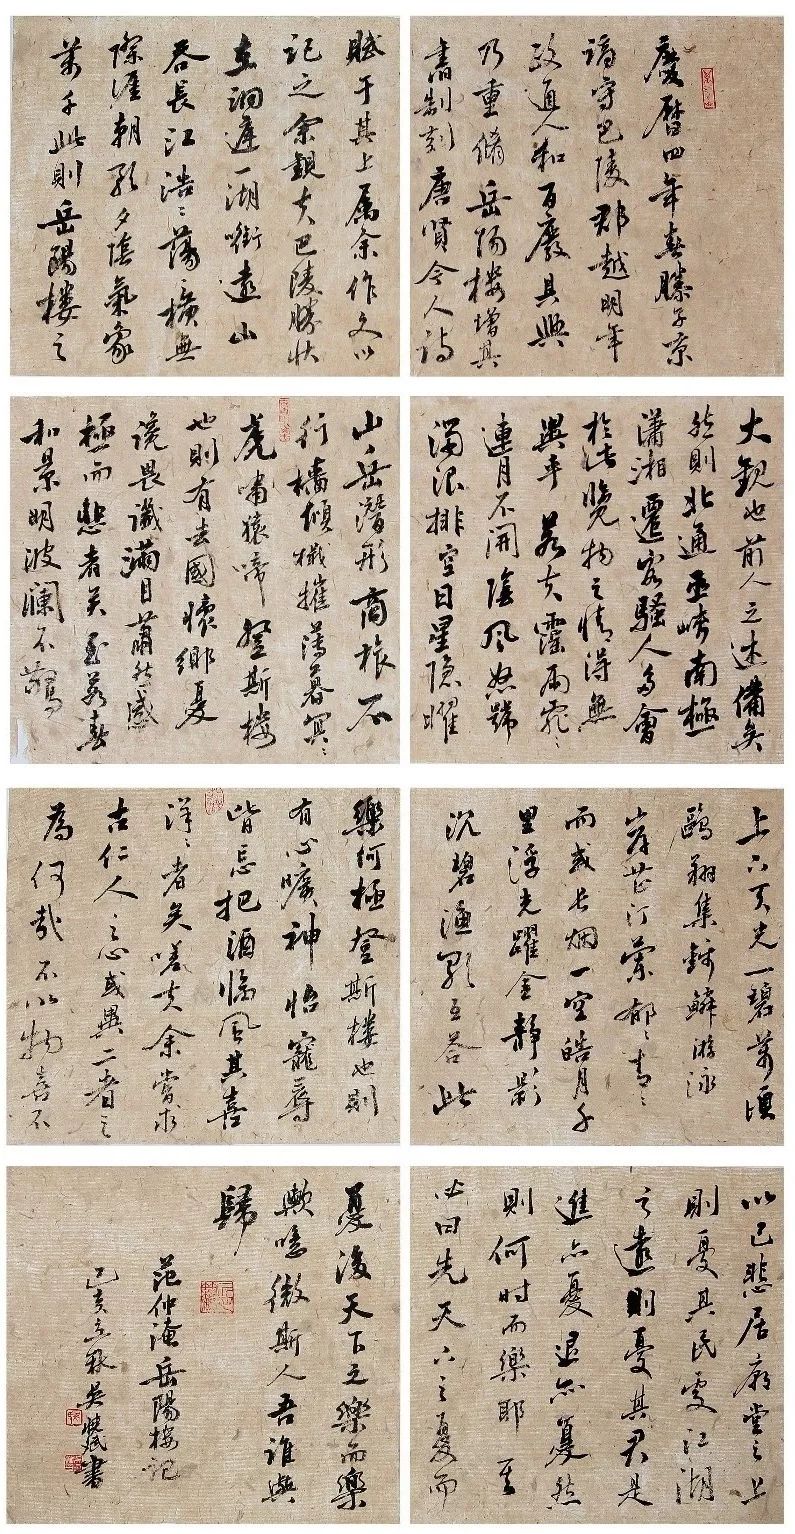 慶曆四年春滕子京
謫守巴陵郡越明年
政通人和百廢具興
乃重脩岳陽樓增其
舊制刻唐賢今人詩
賦于其上屬余作文以
記之余觀夫巴陵勝狀
在洞庭一湖銜遠山
吞長江浩〻蕩〻橫無
際涯朝暉夕陰氣象
萬千此則岳陽樓之
大觀也前人之述備矣
然則北通巫峽南極
瀟湘遷客騷人多會
於此覽物之情得無
異乎若夫霪雨霏〻
連月不開陰風怒號
濁浪排空日星隱曜
山〻岳潛形商旅不
行檣傾楫摧薄暮冥〻
虎嘯猿啼登斯樓
也則有去國懷鄉憂
讒畏譏滿目蕭然感
極而悲者矣至若春
和景明波瀾不驚
上下天光一碧萬頃
鷗翔集錦鱗游泳
岸芷汀蘭郁〻青〻
而或長烟一空皓月千
里浮光躍金靜影
沉碧漁歌互答此
樂何極登斯樓也則
有心曠神怡寵辱
皆忘把酒臨風其喜
洋〻者矣嗟夫余嘗求
古仁人之心或異二者之
為何哉不以物喜不
以己悲居廟堂之上
則憂其民處江湖
之遠則憂其君是
進亦憂退亦憂然
則何時而樂耶其
必曰先天下之憂而
憂後天下之樂而樂
歟噫微斯人吾誰與
歸
范仲淹岳陽樓記
己亥立秋吳斌書